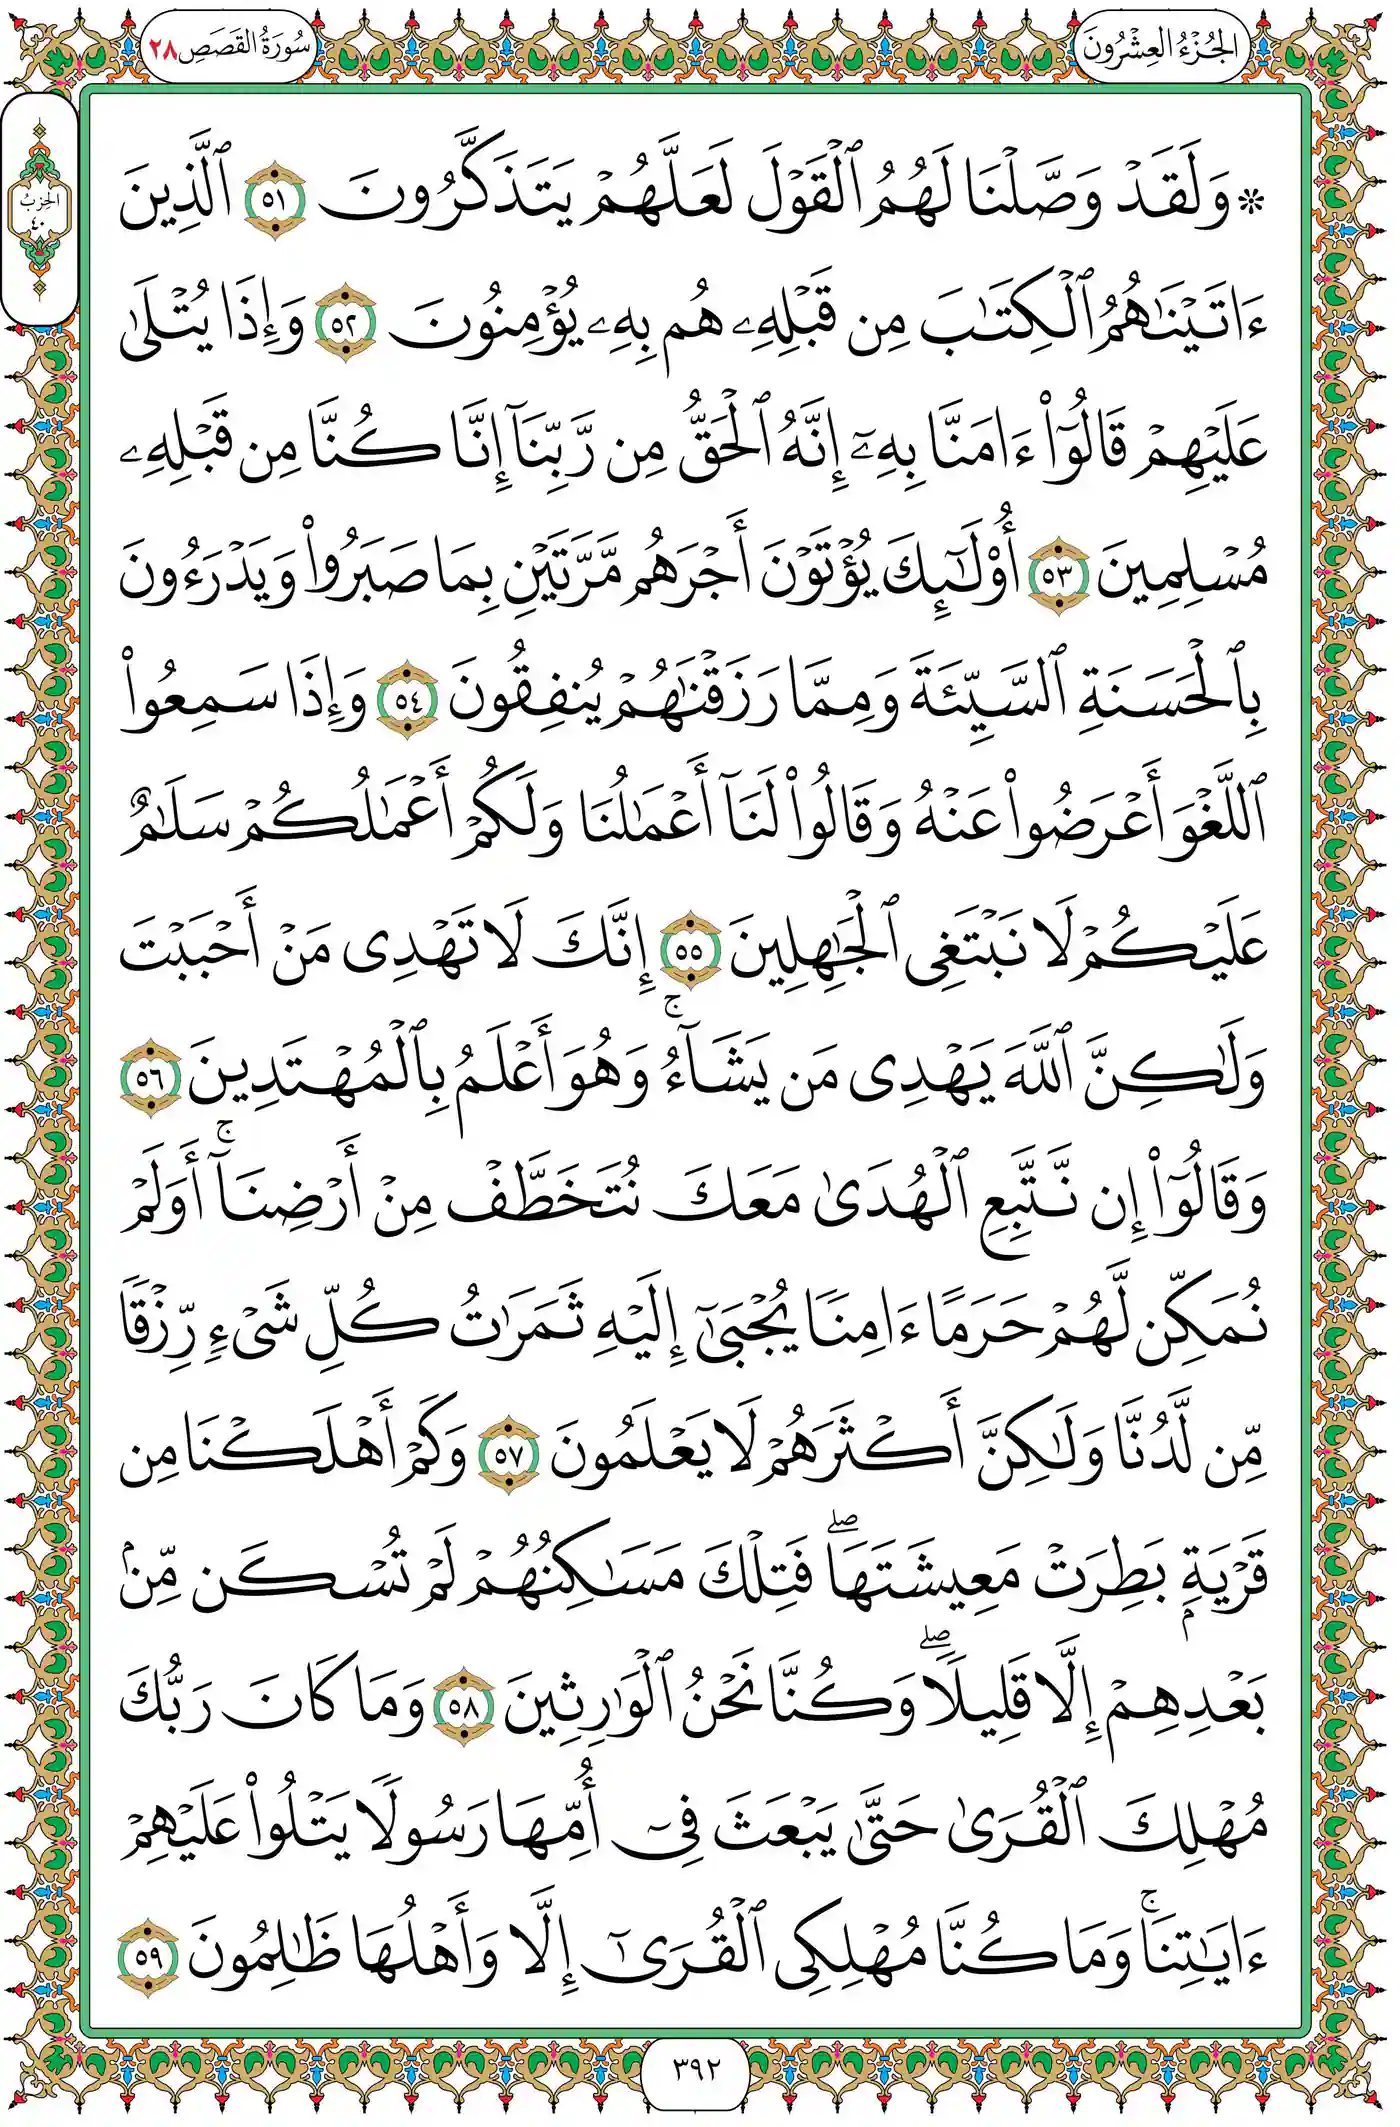 الجُزْءُ العِشْرُونَ
سُورَةُ القَصَصِ ٢٨
الحِزْبُ
٤٠
۞ وَلَقَدْ وَصَّلْنَا لَهُمُ ٱلْقَوْلَ لَعَلَّهُمْ يَتَذَكَّرُونَ ٥١ ٱلَّذِينَ
ءَاتَيْنَٰهُمُ ٱلْكِتَٰبَ مِن قَبْلِهِۦ هُم بِهِۦ يُؤْمِنُونَ ٥٢ وَإِذَا يُتْلَىٰ
عَلَيْهِمْ قَالُوٓا۟ ءَامَنَّا بِهِۦٓ إِنَّهُ ٱلْحَقُّ مِن رَّبِّنَآ إِنَّا كُنَّا مِن قَبْلِهِۦ
مُسْلِمِينَ ٥٣ أُو۟لَٰٓئِكَ يُؤْتَوْنَ أَجْرَهُم مَّرَّتَيْنِ بِمَا صَبَرُوا۟ وَيَدْرَءُونَ
بِٱلْحَسَنَةِ ٱلسَّيِّئَةَ وَمِمَّا رَزَقْنَٰهُمْ يُنفِقُونَ ٥٤ وَإِذَا سَمِعُوا۟
ٱللَّغْوَ أَعْرَضُوا۟ عَنْهُ وَقَالُوا۟ لَنَآ أَعْمَٰلُنَا وَلَكُمْ أَعْمَٰلُكُمْ سَلَٰمٌ
عَلَيْكُمْ لَا نَبْتَغِى ٱلْجَٰهِلِينَ ٥٥ إِنَّكَ لَا تَهْدِى مَنْ أَحْبَبْتَ
وَلَٰكِنَّ ٱللَّهَ يَهْدِى مَن يَشَآءُ ۚ وَهُوَ أَعْلَمُ بِٱلْمُهْتَدِينَ ٥٦
وَقَالُوٓا۟ إِن نَّتَّبِعِ ٱلْهُدَىٰ مَعَكَ نُتَخَطَّفْ مِنْ أَرْضِنَآ ۚ أَوَلَمْ
نُمَكِّن لَّهُمْ حَرَمًا ءَامِنًا يُجْبَىٰٓ إِلَيْهِ ثَمَرَٰتُ كُلِّ شَىْءٍ رِّزْقًا
مِّن لَّدُنَّا وَلَٰكِنَّ أَكْثَرَهُمْ لَا يَعْلَمُونَ ٥٧ وَكَمْ أَهْلَكْنَا مِن
قَرْيَةٍۭ بَطِرَتْ مَعِيشَتَهَا ۖ فَتِلْكَ مَسَٰكِنُهُمْ لَمْ تُسْكَن مِّنۢ
بَعْدِهِمْ إِلَّا قَلِيلًا ۖ وَكُنَّا نَحْنُ ٱلْوَٰرِثِينَ ٥٨ وَمَا كَانَ رَبُّكَ
مُهْلِكَ ٱلْقُرَىٰ حَتَّىٰ يَبْعَثَ فِىٓ أُمِّهَا رَسُولًا يَتْلُوا۟ عَلَيْهِمْ
ءَايَٰتِنَا ۚ وَمَا كُنَّا مُهْلِكِى ٱلْقُرَىٰٓ إِلَّا وَأَهْلُهَا ظَٰلِمُونَ ٥٩
٣٩٢